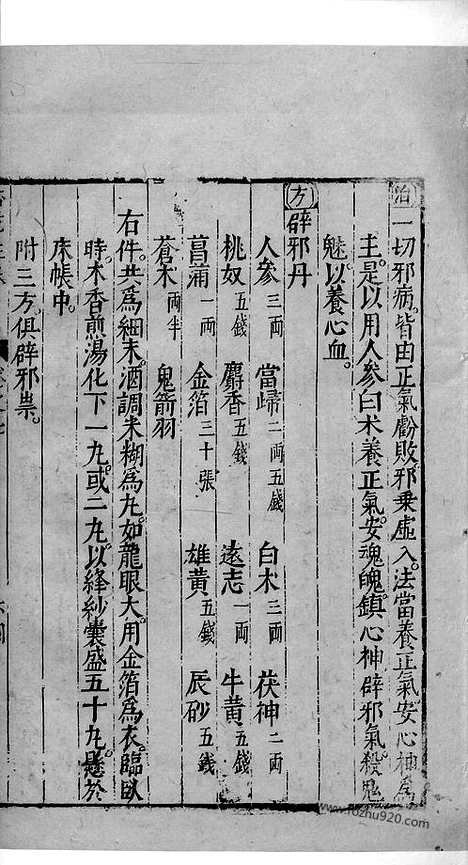 治一切邪病皆由正氣虧敗邪乘虛入法當養正氣安心神為
主是以用人參白术養正氣安魂魄鎮心神辟邪氣殺鬼
魅以養心血
方辟邪丹
人參三兩 當歸二兩五錢 白术三兩 茯神二兩
桃奴五錢 麝香五錢 遠志一兩 牛黃五錢
菖蒲一兩 金箔三十張 雄黃五錢 辰砂五錢
蒼术兩半 鬼箭羽
右件共為細末酒調米糊為丸如龍眼大用金箔為衣臨臥
時木香煎湯化下一丸或二丸以絳紗囊盛五十丸懸於
床帳中
附三方俱辟邪祟
www.fozhu920.com